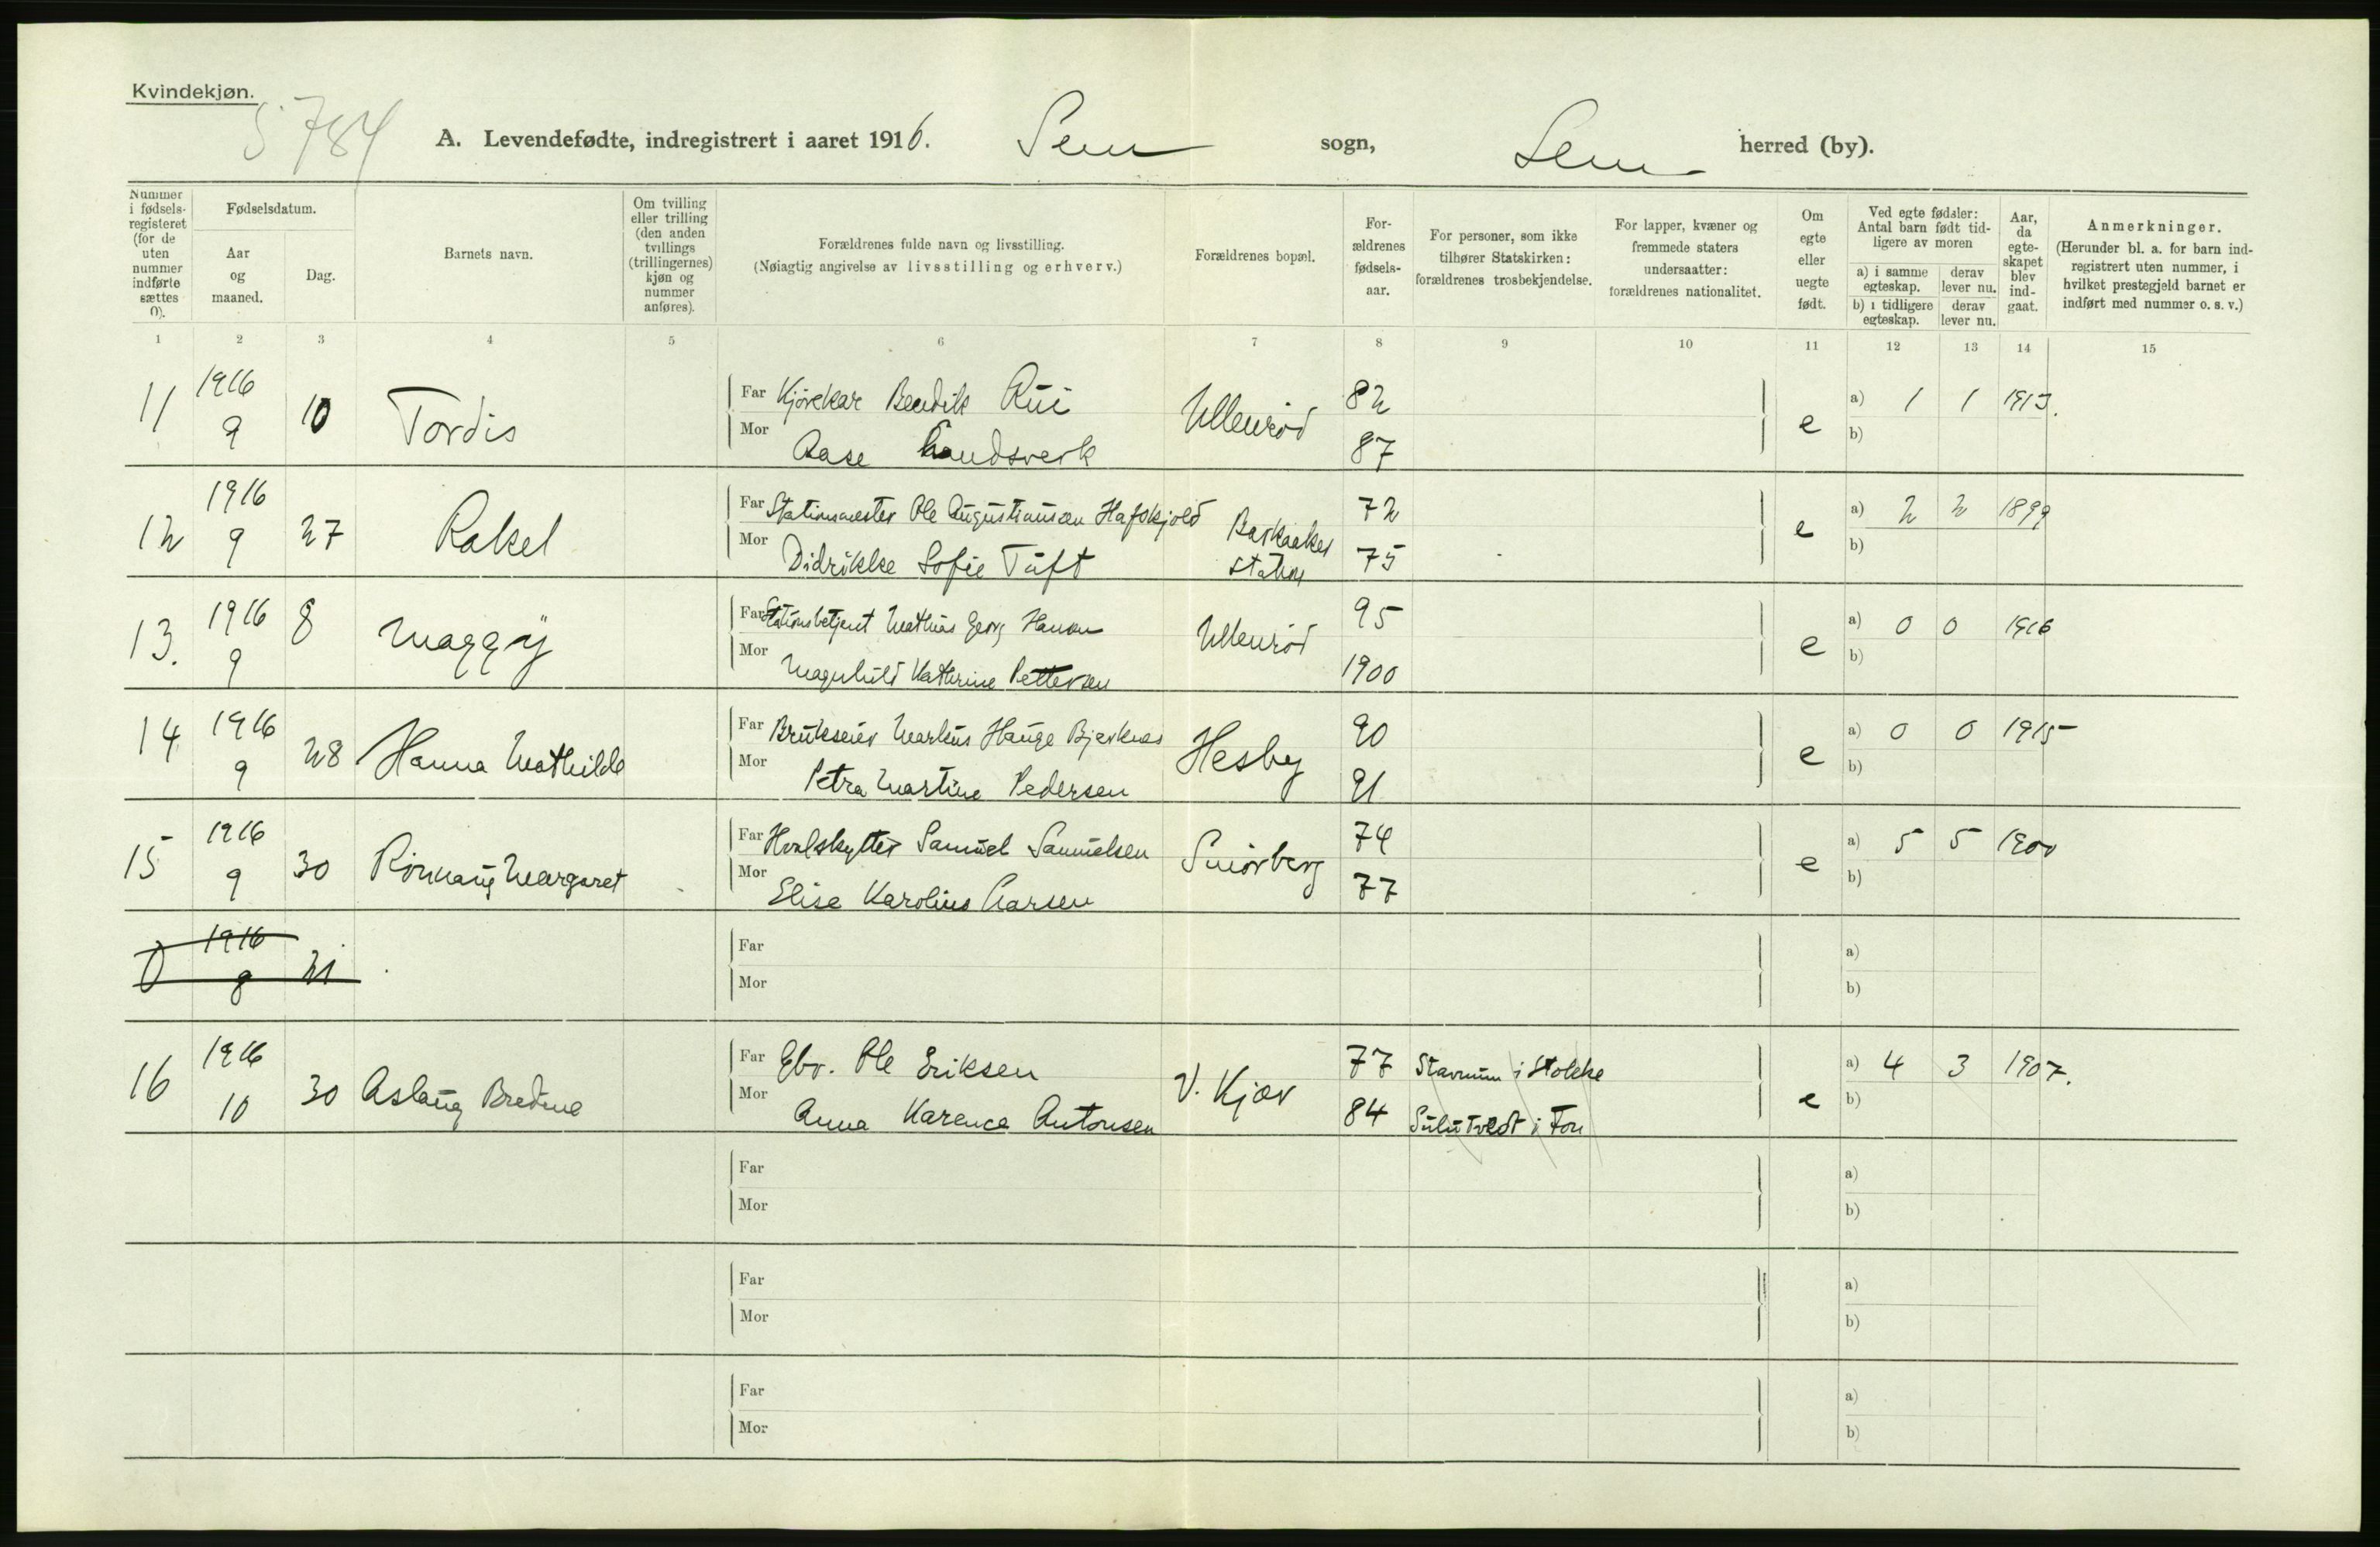 Kvindekjøn.
5784
A. Levendefødte, indregistrert i aaret 1916. Sem sogn, Sem herred (by).
Nummer i fødsels-registeret (for de uten nummer indførte sættes 0).
Fødselsdatum.
Aar og maaned.
Dag.
Barnets navn.
Om tvilling eller trilling (den anden tvillings (trillingernes) kjøn og nummer anføres).
Forældrenes fulde navn og livsstilling.
(Nøiagtig angivelse av livsstilling og erhverv.)
Forældrenes bopæl.
For-ældrenes fødsels-aar.
For personer, som ikke tilhører Statskirken: forældrenes trosbekjendelse.
For lapper, kvæner og fremmede staters undersaatter: forældrenes nationalitet.
Om egte eller uegte født.
Ved egte fødsler: Antal barn født tid-ligere av moren
a) i samme egteskap. derav lever nu.
b) i tidligere egteskap. derav lever nu.
Aar, da egte-skapet blev ind-gaat.
Anmerkninger.
(Herunder bl. a. for barn ind-registrert uten nummer, i hvilket prestegjeld barnet er indført med nummer o. s. v.)
1 2 3 4 5 6 7 8 9 10 11 12 13 14 15
11 1916 9 10 Tordis
Far Kjørekar Bendik Rui Ullenrød 82 e a) 1 1 1913.
Mor Aase Landsverk 87 b)
12 1916 9 27 Rakel
Far Stationsmester Ole Augustinusen Hafskjold Barkaaker Station 72 e a) 2 2 1899
Mor Didrikke Sofie Tuft 75 b)
13. 1916 9 8 Maggy
Far Stationsbetjent Mathias Georg Hansen Ullenrød 95 e a) 0 0 1916
Mor Magnhild Kathrine Pettersen 1900 b)
14 1916 9 28 Hanna Mathilde
Far Brukseier Markus Hauge Bjerknes Hesby 90 e a) 0 0 1915
Mor Petra Martine Pedersen 91 b)
15 1916 9 30 Rönnaug Margaret
Far Hvalskytter Samuel Samuelsen Smørberg 74 e a) 5 5 1900
Mor Elise Karoline Larsen 77 b)
0 1916 9 21
Far a)
Mor b)
16 1916 10 30 Aslaug Bredine
Far Gbr. Ole Eriksen V. Kjær 77 Stavnum i Stokke e a) 4 3 1907.
Mor Anna Karence Antonsen 84 i Fon b)
Far a)
Mor b)
Far a)
Mor b)
Far a)
Mor b)